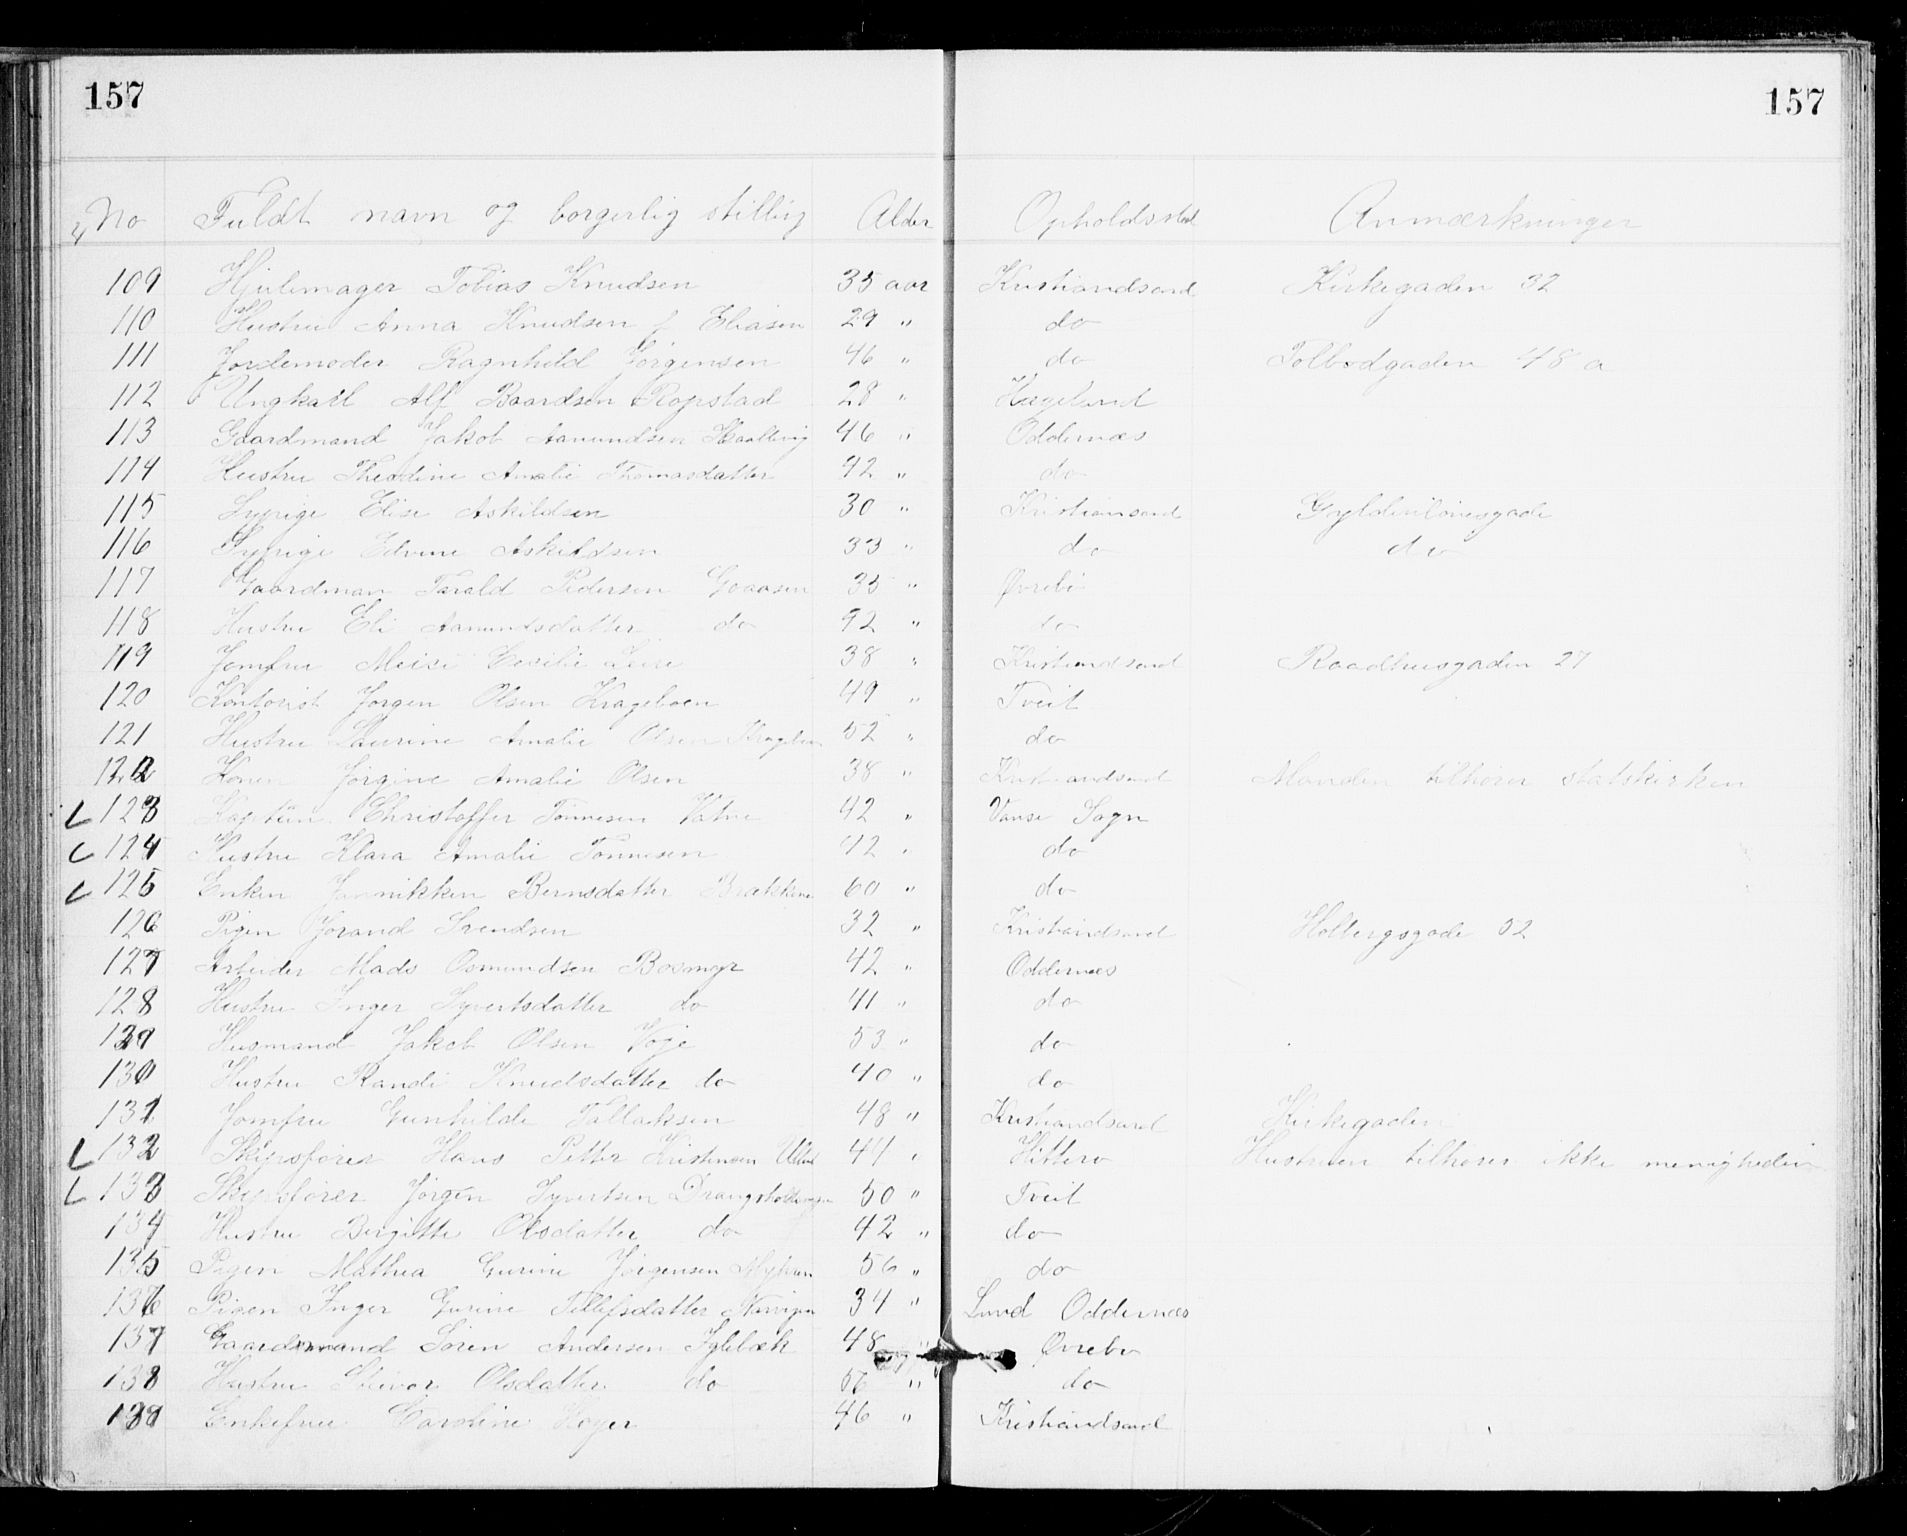 157 157
No Fuldt navn og borgerlig stilling Alder Opholdssted Anmærkninger
109 Hjulemager Tobias Knudsen 35 aar Kristiandsand Kirkegaden 32
110 Hustru Anna Knudsen f Eliasen 29 " do
111 Jordemoder Ragnhild Jørgensen 46 " do Tolbodgaden 48 a
112 Ungkarl Alf Baardsen Ropstad 28 " Hægeland
113 Gaardmand Jakob Aanundsen 46 " Oddernæs
114 Hustru Theodine Amalie Thomasdatter 42 " do
115 Sypige Elise Askildsen 30 " Kristiansand Gyldenløvesgade
116 Sypige Edvine Askildsen 33 " do do
117 Gaardman Tarald Pedersen Goaasen 35 " Øvrebø
118 Hustru Eli Aanundsdatter do 42 " do
119 Jomfru Meisi Cecilie 38 " Kristiandsand Raadhusgaden 27
120 Kontorist Jørgen Olsen Krageboen 49 " Tveit
121 Hustru Laurine Amalie Olsen 52 " do
122 Konen Jørgine Amalie Olsen 38 " Kristiandsand Manden tilhører statskirken
L 123 Kaptein Christoffer Tønnesen Vatne 42 " Vanse Sogn
L 124 Hustru Klara Amalie Tønnesen 42 " do
L 125 Enken Jannikken Berntsdatter 60 " do
126 Pigen Jorand Svendsen 32 " Kristiandsand Holbergsgade 52
127 Arbeider Mads Osmundsen Bosmyr 42 " Oddernæs
128 Hustru Inger Syvertsdatter do 41 " do
129 Husmand Jakob Olsen Voje 53 " do
130 Hustru Randi Knudsdatter do 40 " do
131 Jomfru Gunhilde Tallaksen 48 " Kristiandsand Kirkegaden
L 132 Skipsfører Hans Petter Kristensen 44 " Hitterø Hustruen tilhører ikke menigheden
L 133 Skipsfører Jørgen Syvertsen 50 " Tveit
134 Hustru Birgitte Olsdatter do 42 " do
135 Pigen Mathea Gurine Jørgensen 56 " do
136 Pigen Inger Gurine Tellefsdatter 34 " Lund Oddernæs
137 Gaardmand Søren Andersen Iglebæk 48 " Øvrebø
138 Hustru Olsdatter do 56 " do
139 Enkefrue Caroline Høyer 46 " Kristiandsand